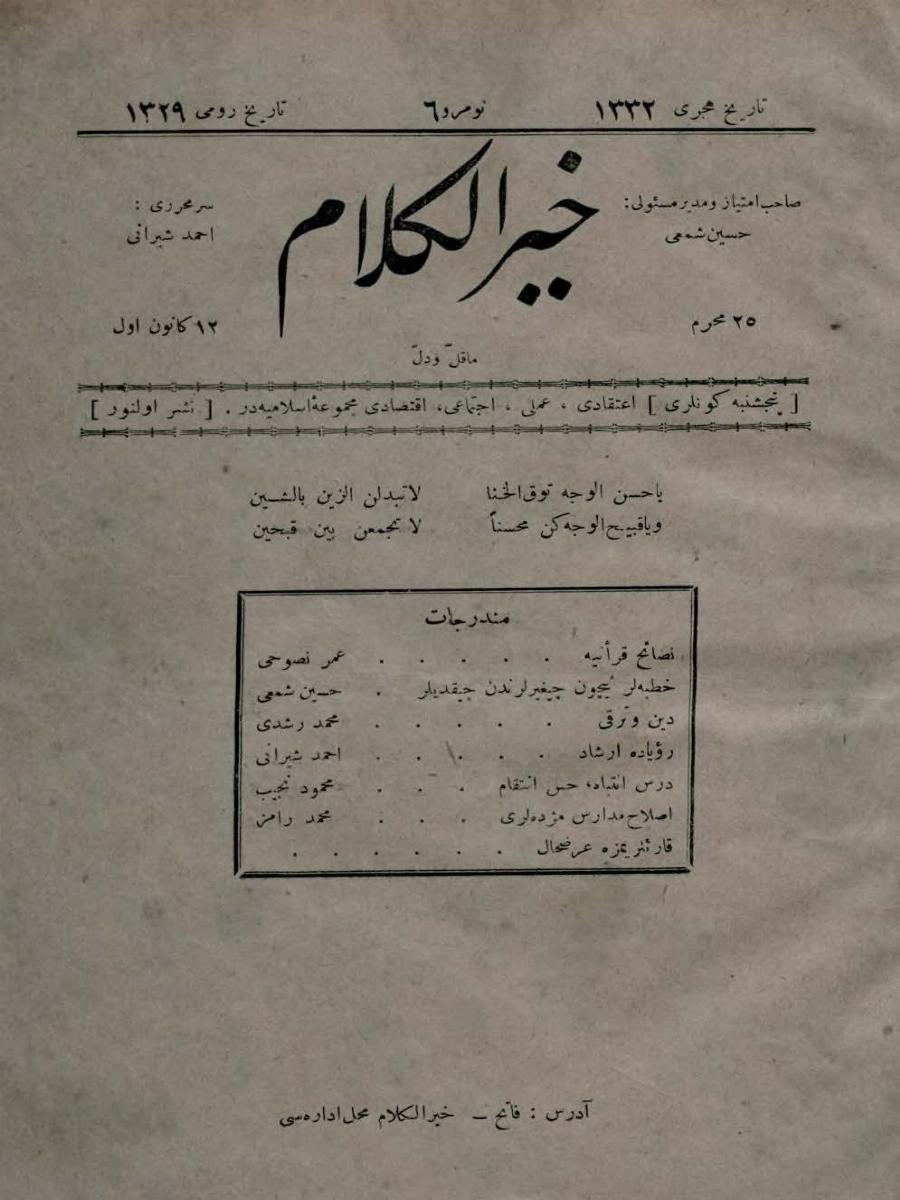 تاریخ هجری ١٣٣٢ نومرو ٦ تاریخ رومی ١٣٢٩
خیر الکلام
صاحب امتیاز و مدیر مسئولی:
حسین شمعی
سرمحرری :
احمد شیرانی
٢٥ محرم
١٢ کانون اول
ماقلّ ودلّ
[ پنجشنبه کونلری ] اعتقادی ، عملی ، اجتماعی، اقتصادی مجموعهٔ اسلامیه‌در . [ نشر اولنور ]
یاحسن الوجه توق الخنا لاتبدلن الزین بالشین
ویاقبیح الوجه کن محسناً لا تجمعن بین قبحین
مندرجات
نصائح قرآنیه . . . . . عمر نصوحی
خطبه‌لر نیچون چیغیرلرندن چیقدیلر . حسین شمعی
دین و ترقی . . . . . محمد رشدی
رؤیاده ارشاد . . . . . احمد شیرانی
درس انتباه، حس انتقام . . . محمود نجیب
اصلاح مدارس مژده‌لری . . . محمد رامز
قارئلریمزه عرضحال . . . . . .
آدرس : فاتح — خیر الکلام محل اداره‌سی